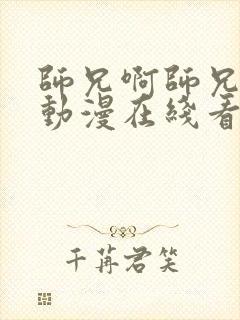 師兄啊師兄
動漫在綫看
千苒君笑